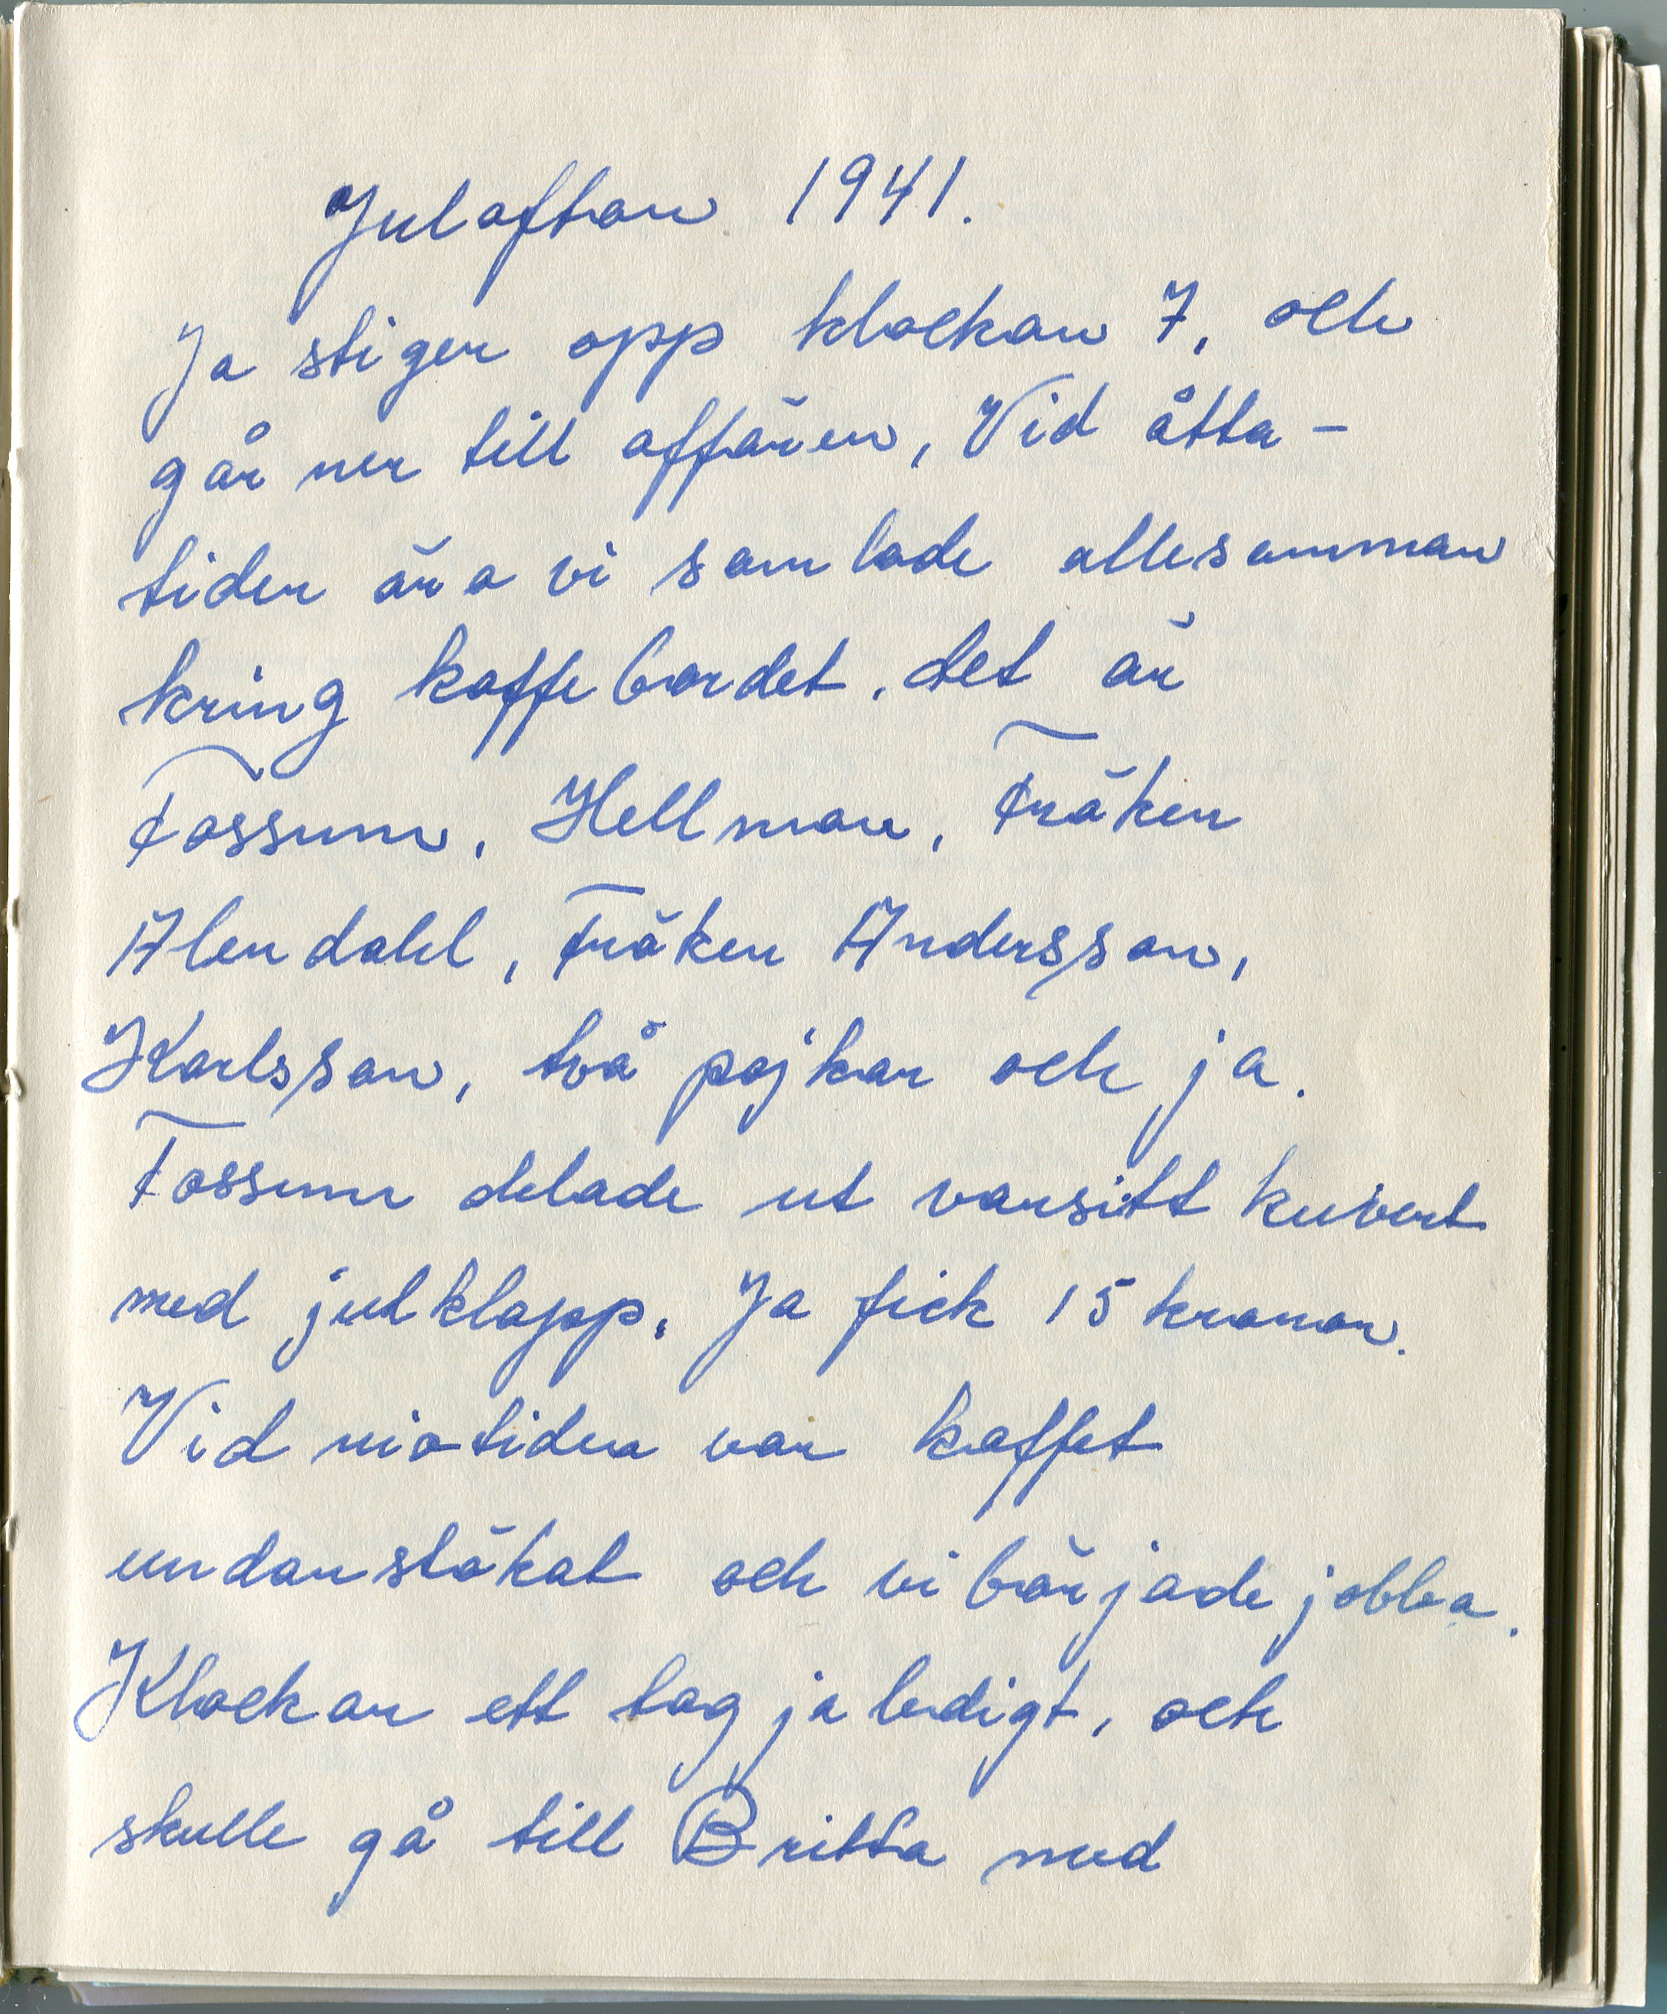 Julaftan 1941.
Ja stiger opp klockan 7, och
går ner till affären, Vid åtta-
tiden ära vi samlade allesamman
kring kaffebordet. det är
Fossum, Hellman, Fröken
Alendahl, Fröken Andersson,
Karlsson, två pojkar och ja.
Fossum delade ut varsitt kuvert
med julklapp. Ja fick 15 kronor.
Vid niotiden var kaffet
undanstökat och vi började jobba.
Klockan ett tog ja ledigt, och
skulle gå till Britta med